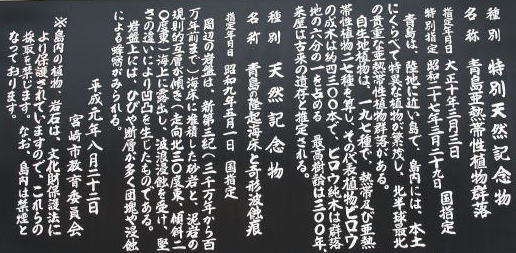 種別 特別天然記念物
名称 青島亜熱帯性植物群落
指定年月日 大正十年三月三日 国指定
特別指定 昭和二十七年三月二十九日
青島は、陸地に近い島で、島内には、本土
にくらべて特異な植物が繁茂し、北半球最北
の貴重な亜熱帯性植物群落がある。
自生地植物は、一九七種で、熱帯及び亜熱
帯性植物二七種を算し、その代表植物ビロウ
の成木は約四三〇〇本で、ビロウ純木は群落
地の六分の一を占める 最高樹齢は三〇〇年、
来歴は古来の遺存と推定される。
種別 天然記念物
名称 青島の隆起海床と奇形波蝕痕
指定年月日 昭和九年五月一日 国指定
周辺の岩盤は、新第三紀(三千万年から百
万年前まで)海床に堆積した砂岩と、泥岩の
規則的互層が傾き(走向北三〇度東、傾斜二
〇度東)海上に露出し、波浪浸蝕を受け、堅
さの違いにより凹凸を生じたものである。
岩盤上には、ひびや断層が多く団塊や浸蝕
による蜂窩がみられる。
平成元年八月二十二日
宮崎市教育委員会
※島内の植物、岩石は、文化財保護法に
より保護されていますので、これらの
採取を禁じます。なお、島内は禁煙と
なっております。